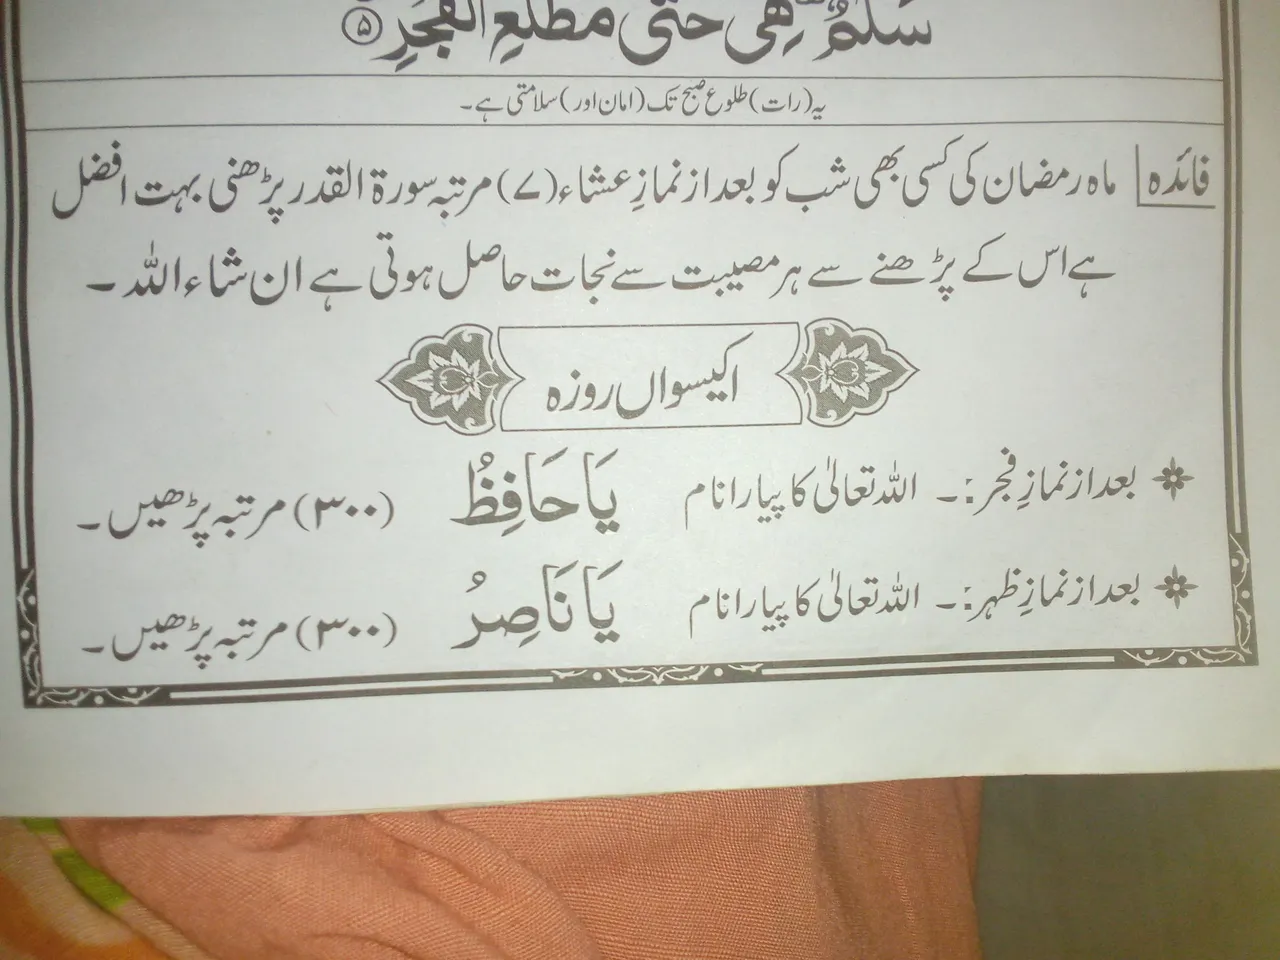 سَلٰمٌ ۛ هِیَ حَتّٰی مَطْلَعِ الْفَجْرِ ۵
یہ (رات) طلوع صبح تک (امان اور) سلامتی ہے۔
فائدہ ماہ رمضان کی کسی بھی شب کو بعد از نمازِ عشاء (۷) مرتبہ سورۃ القدر پڑھنی بہت افضل
ہے اس کے پڑھنے سے ہر مصیبت سے نجات حاصل ہوتی ہے ان شاء اللہ۔
اکیسواں روزہ
بعد از نمازِ فجر:۔ اللہ تعالیٰ کا پیارا نام یَا حَافِظُ (۳۰۰) مرتبہ پڑھیں۔
بعد از نمازِ ظہر:۔ اللہ تعالیٰ کا پیارا نام یَا نَاصِرُ (۳۰۰) مرتبہ پڑھیں۔